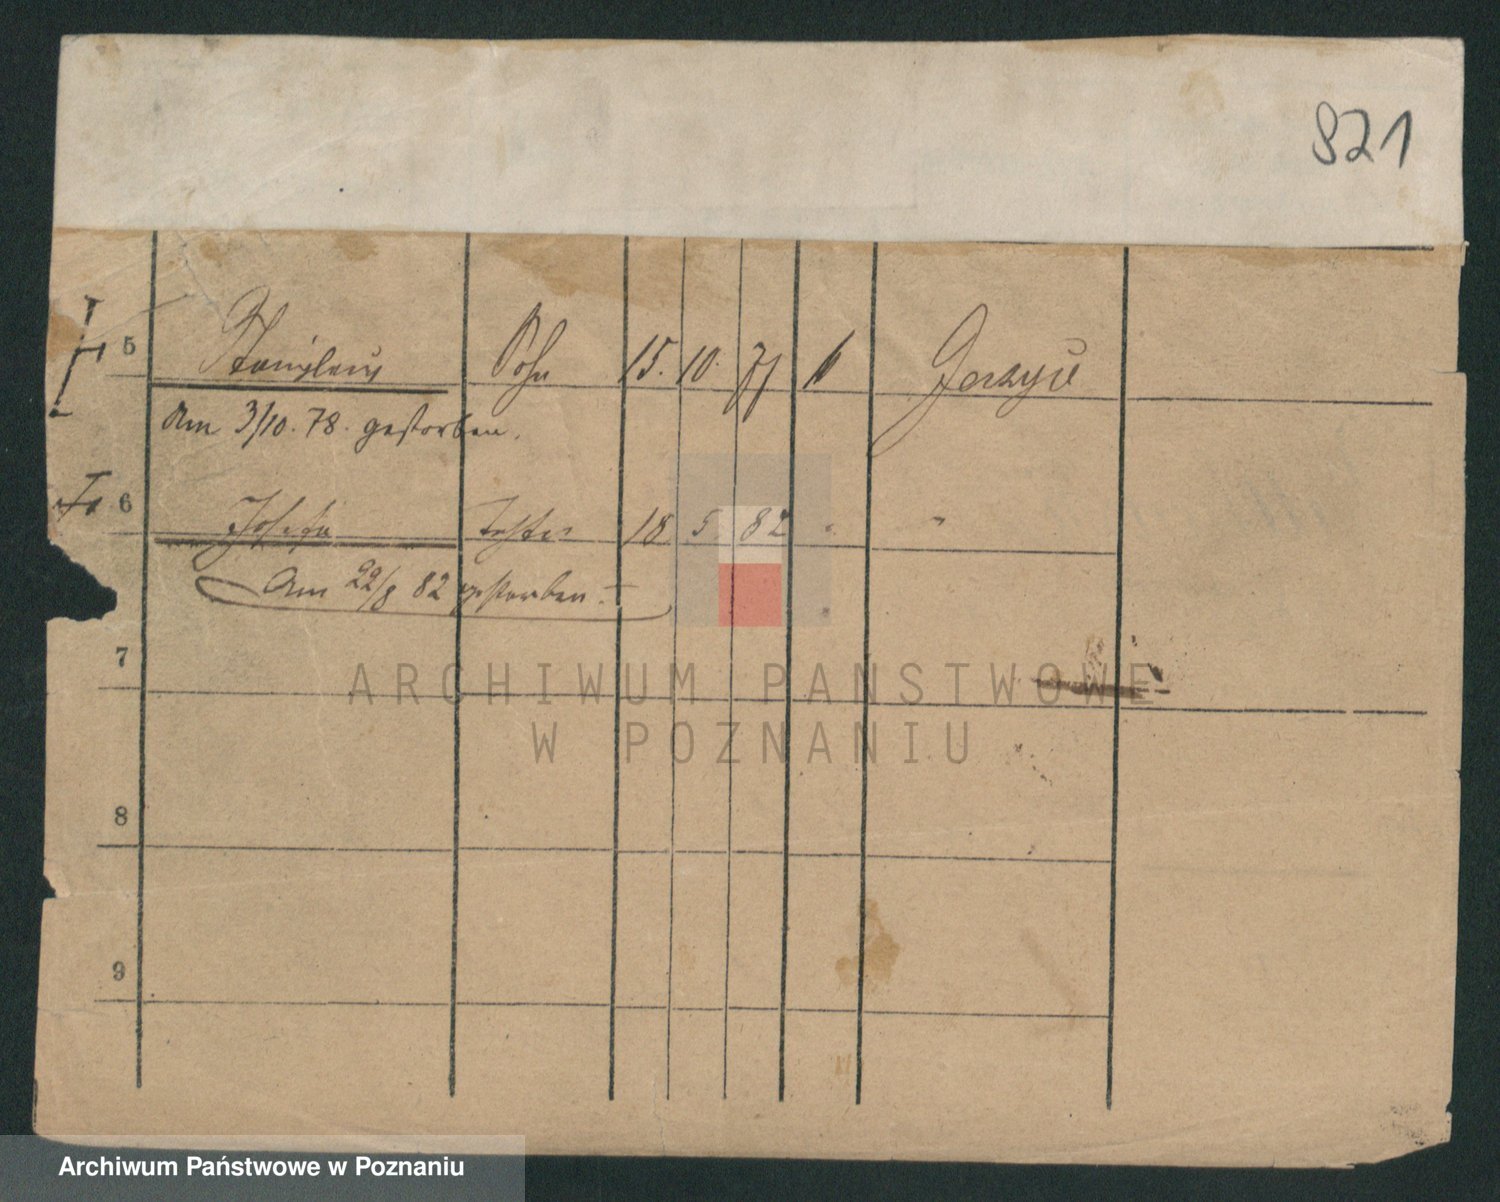 821
5 Stanislaus Sohn 15. 10. 77 k Jerzyce
Am 3/10. 78. gestorben.
6 Josefa Tochter 18 5 82 " "
Am 22/8 82 gestorben.
7
ARCHIWUM PAŃSTWOWE
W POZNANIU
8
9
Archiwum Państwowe w Poznaniu